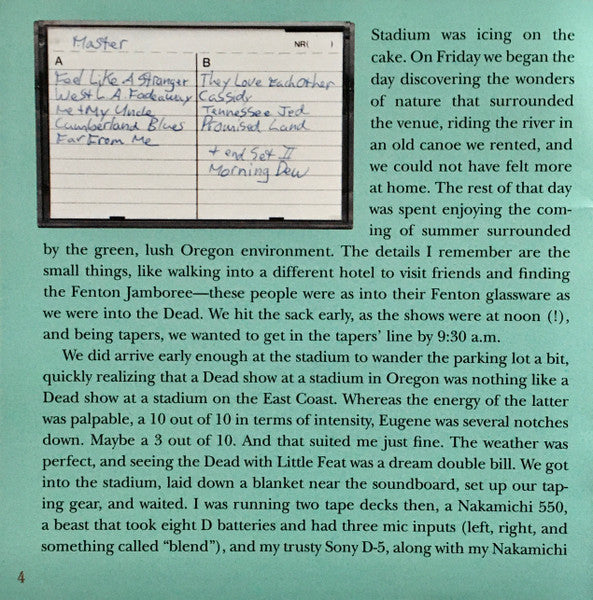 Master
NR( )
A
B
Feel Like A Stranger
West L.A. Fadeaway
Me + My Uncle
Cumberland Blues
Far From Me
They Love Each Other
Cassidy
Tennessee Jed
Promised Land
+ end Set II
Morning Dew
Stadium was icing on the
cake. On Friday we began the
day discovering the wonders
of nature that surrounded
the venue, riding the river in
an old canoe we rented, and
we could not have felt more
at home. The rest of that day
was spent enjoying the com-
ing of summer surrounded
by the green, lush Oregon environment. The details I remember are the
small things, like walking into a different hotel to visit friends and finding
the Fenton Jamboree—these people were as into their Fenton glassware as
we were into the Dead. We hit the sack early, as the shows were at noon (!),
and being tapers, we wanted to get in the tapers' line by 9:30 a.m.
We did arrive early enough at the stadium to wander the parking lot a bit,
quickly realizing that a Dead show at a stadium in Oregon was nothing like a
Dead show at a stadium on the East Coast. Whereas the energy of the latter
was palpable, a 10 out of 10 in terms of intensity, Eugene was several notches
down. Maybe a 3 out of 10. And that suited me just fine. The weather was
perfect, and seeing the Dead with Little Feat was a dream double bill. We got
into the stadium, laid down a blanket near the soundboard, set up our tap-
ing gear, and waited. I was running two tape decks then, a Nakamichi 550,
a beast that took eight D batteries and had three mic inputs (left, right, and
something called "blend"), and my trusty Sony D-5, along with my Nakamichi
4